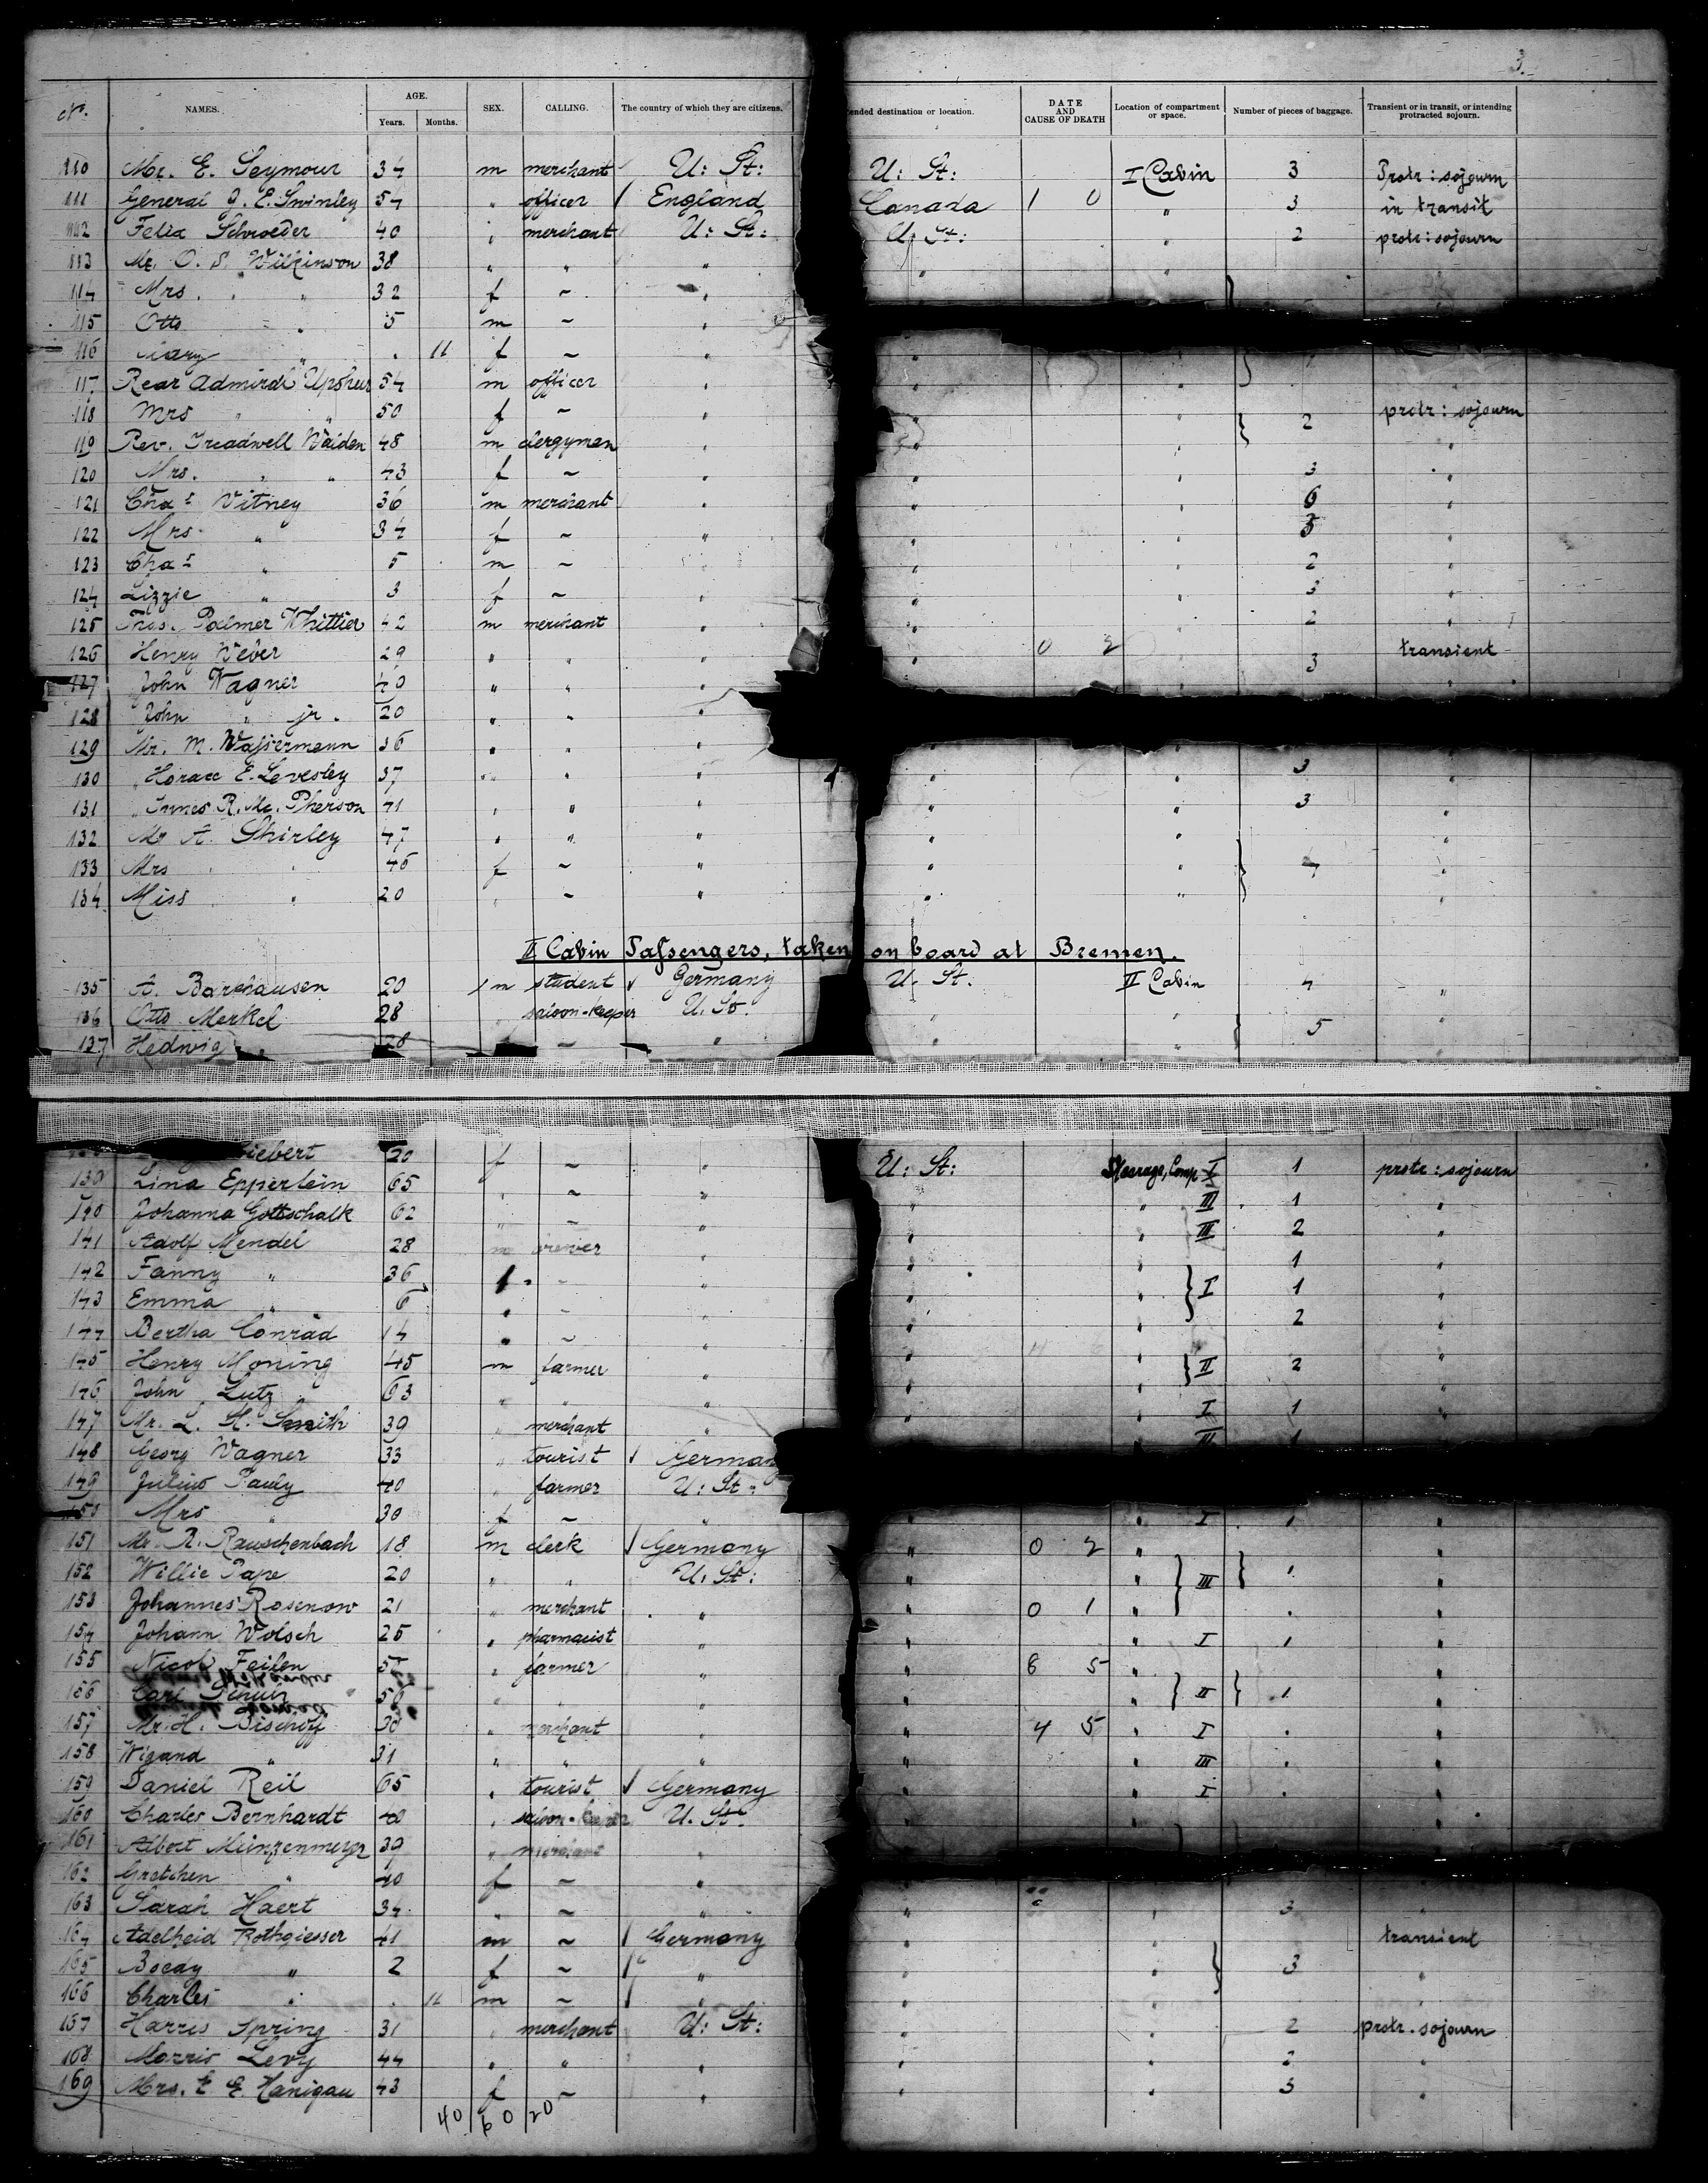 3.
No. NAMES. AGE. Years. Months. SEX. CALLING. The country of which they are citizens. ended destination or location. DATE AND CAUSE OF DEATH Location of compartment or space. Number of pieces of baggage. Transient or in transit, or intending protracted sojourn.
110 Mr. E. Seymour 34 m merchant U: St: U: St: I Cabin 3 Protr: sojourn
111 General J. E. Swinley 54 " officer England Canada 1 0 " 3 in transit
112 Felix Schroeder 40 " merchant U: St: U: St: " 2 protr: sojourn
113 Mr. O. S. Wilkinson 38 " " " " "
114 Mrs. " " 32 f ~ "
115 Otto " 5 m ~ "
116 Mary " . 11 f ~ "
117 Rear Admiral Upshur 54 m officer " " "
118 Mrs " " 50 f ~ " " " 2 protr: sojourn
119 Rev. Treadwell Walden 48 m clergyman " " "
120 Mrs. " " 43 f ~ " " " 3 "
121 Chas Witney 36 m merchant " " " 6 "
122 Mrs. " 34 f ~ " " " 5 "
123 Chas " 5 m ~ " " " 2 "
124 Lizzie " 3 f ~ " " " 3 "
125 Thos. Palmer Whittier 42 m merchant " " " 2 "
126 Henry Weber 29 " " " " 0 2 " 3 transient
127 John Wagner 40 " " "
128 John " jr. 20 " " "
129 Mr. M. Wassermann 36 " " "
130 " Horace E. Levesley 37 " " " " " 3 "
131 " Innes R. Mc. Pherson 41 " " " " " 3 "
132 Mr A. Shirley 47 " " " " " "
133 Mrs " " 46 f ~ " " " 4 "
134 Miss " " 20 " ~ " " "
II Cabin Passengers, taken on board at Bremen.
135 A. Barkhausen 20 m student Germany U. St. II Cabin 4 "
136 Otto Merkel 28 " saloon-keeper U. St. " " 5 "
137 Hedwig " 28 ~ " " " "
Siebert 20 f ~ " U: St: Steerage, Comp. I 1 protr: sojourn
139 Lina Epperlein 65 " ~ " " " III 1 "
140 Johanna Gottschalk 62 " ~ " " " III 2 "
141 Adolf Mendel 28 m brewer " " " 1 "
142 Fanny " 36 f ~ " " " I 1 "
143 Emma " 6 " ~ " " " 2 "
144 Bertha Conrad 14 " ~ " " "
145 Henry Moning 45 m farmer " " " II 2 "
146 John Lutz 63 " " " " " I 1 "
147 Mr. L. H. Smith 39 " merchant " III 1
148 Georg Wagner 33 " tourist Germany
149 Julius Pauly 40 " farmer U: St:
150 Mrs " 30 f ~ " " " I 1 "
151 Mr. R. Rauschenbach 18 m clerk Germany " 0 2 " "
152 Willie Pape 20 " " U: St: " " III 1 "
153 Johannes Rosenow 21 " merchant " " 0 1 " "
154 Johann Wolsch 25 " pharmacist " " " I 1 "
155 Nicol Feilen " farmer " " 8 5 " "
156 Carl 56 " " " " " II 1 "
157 Mr. H. Bischoff 30 " merchant " " 4 5 " I "
158 Wigand " 31 " " " " " III "
159 Daniel Reil 65 " tourist Germany " " I "
160 Charles Bernhardt 40 " saloon-keeper U. St. " "
161 Albert Meinzenmeyer 39 " merchant "
162 Gretchen " 40 f ~ "
163 Sarah Haert 34 " ~ " " " 3 "
164 Adelheid Rothgiesser 41 m ~ Germany " " transient
165 Boeay " 2 f ~ " " " 3 "
166 Charles " . 11 m ~ " " " "
167 Harris Spring 31 " merchant U: St: " " 2 protr. sojourn
168 Morris Levy 44 " " " " " 2 "
169 Mrs. E. E. Hanigau 43 f ~ " " " 3 "
40 60 20